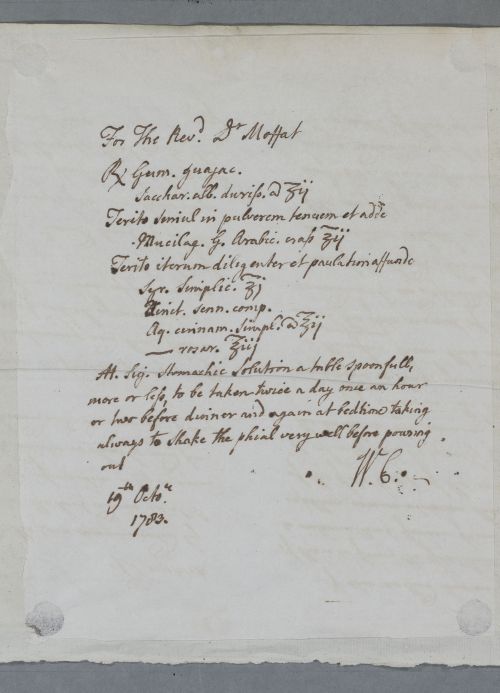 For The Revd. Dr Moffat
℞ Gum. guajac.
Sacchar. alb. duriss. a ʒij
Terito simul in pulverem tenuem et adde
Mucilag. G. Arabic. crass ʒij
Terito iterum diligenter et paulatim affunde
Syr. Simplic. ʒj
Tinct. senn. comp.
Aq. cinnam. simpl. a ʒij
— rosar. ʒiij
M. Sig. Stomachic Solution a table spoonfull,
more or less, to be taken twice a day once an hour
or two before dinner and again at bedtime taking
always to shake the phial very well before pouring
out
W. C.
19th Octr.
1783.